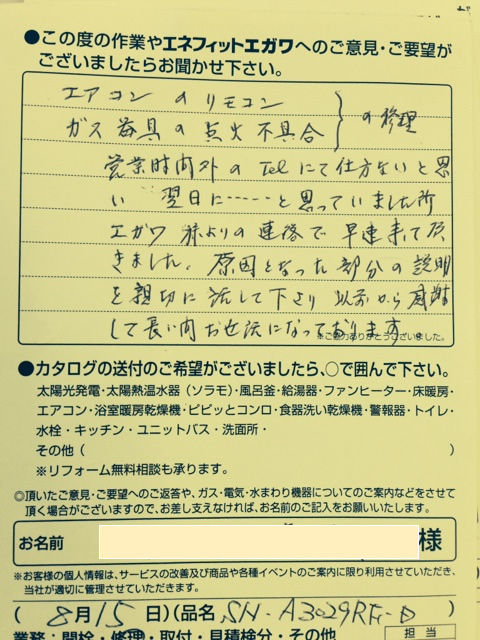 ●この度の作業やエネフィットエガワへのご意見・ご要望が
ございましたらお聞かせ下さい。
エアコン のリモコン
ガス器具の点火不具合 の修理
営業時間外の Telにて仕方ないと思
い 翌日に……と思っていました所
エガワ 様よりの連絡で 早速来て頂
きました。原因となった部分の説明
を親切に話して下さり 以前から感謝
して長い間お世話になっております
※ご協力ありがとうございました。
●カタログの送付のご希望がございましたら、○で囲んで下さい。
太陽光発電・太陽熱温水器（ソラモ）・風呂釜・給湯器・ファンヒーター・床暖房・
エアコン・浴室暖房乾燥機・ピピッとコンロ・食器洗い乾燥機・警報器・トイレ・
水栓・キッチン・ユニットバス・洗面所・
その他（ ）
※リフォーム無料相談も承ります。
◎頂いたご意見・ご要望へのご返答や、ガス・電気・水まわり機器についてのご案内などをさせて
頂く場合がございますので、お差し支えなければ、お名前のご記入をお願いいたします。
お名前 様
※お客様の個人情報は、サービスの改善及び商品や各種イベントのご案内に限り利用させていただき、
当社が適切に管理させていただきます。
（ 8月15日）（品名 SH-A3029RF-D ）
業務：開栓・修理・取付・見積検分・その他 担当